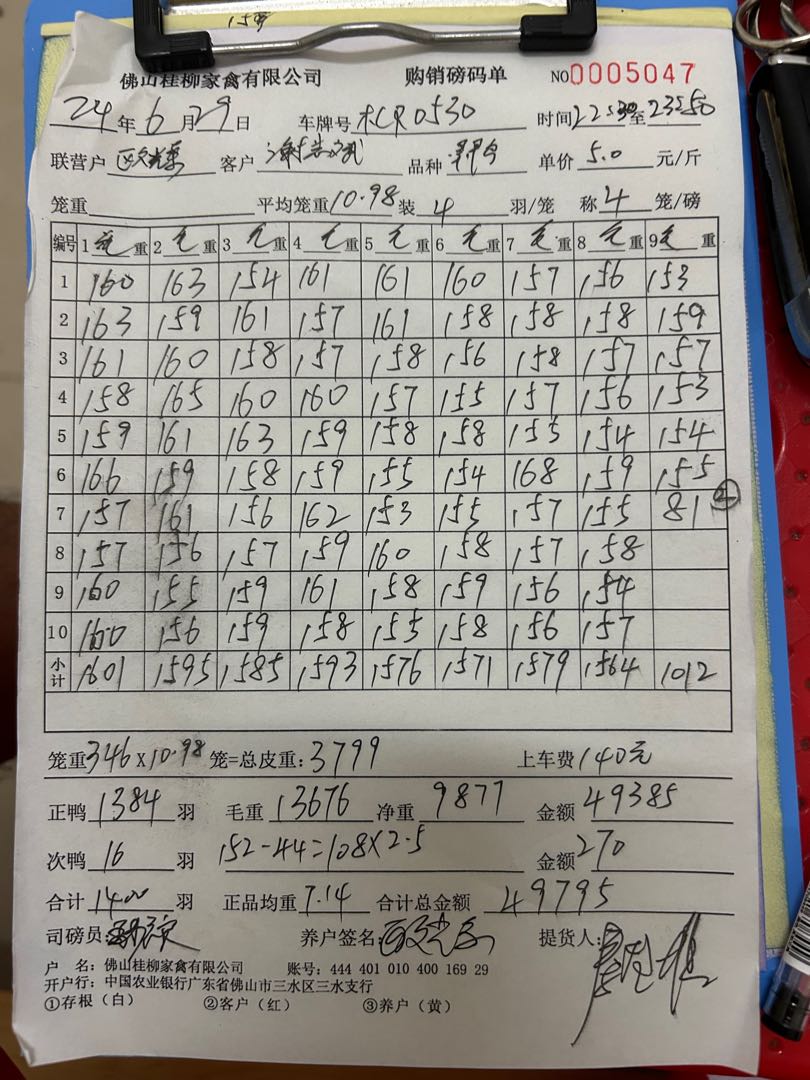 佛山桂柳家禽有限公司 购销磅码单 NO0005047
24年6月29日 车牌号 0530 时间22:30至23:50
联营户 客户 品种 单价5.0元/斤
笼重 平均笼重10.98装4羽/笼 称4笼/磅
编号 1毛重 2毛重 3毛重 4毛重 5毛重 6毛重 7毛重 8毛重 9毛重
1 160 163 154 161 161 160 157 156 153
2 163 159 161 157 161 158 158 158 159
3 161 160 158 157 158 156 158 157 157
4 158 165 160 160 157 155 157 156 153
5 159 161 163 159 158 158 155 154 154
6 166 159 158 159 155 154 168 159 155
7 157 161 156 162 153 155 157 155 81 ②
8 157 156 157 159 160 158 157 158
9 160 155 159 161 158 159 156 154
10 160 156 159 158 155 158 156 157
小计 1601 1595 1585 1593 1576 1571 1579 1564 1012
笼重346×10.98笼=总皮重:3799 上车费140元
正鸭1384羽 毛重13676 净重9877 金额49385
次鸭16羽 152-44=108×2.5 金额270
合计1400羽 正品均重7.14 合计总金额49795
司磅员: 养户签名: 提货人:
户 名:佛山桂柳家禽有限公司 账号:444 401 010 400 169 29
开户行:中国农业银行广东省佛山市三水区三水支行
①存根(白) ②客户(红) ③养户(黄)